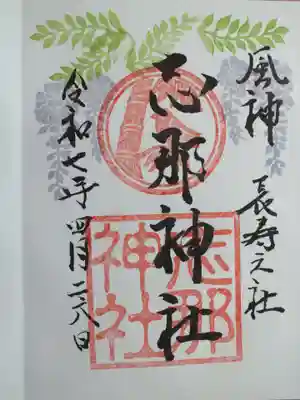 風神　長寿之社
志那神社
令和七年四月二八日
志那
神社